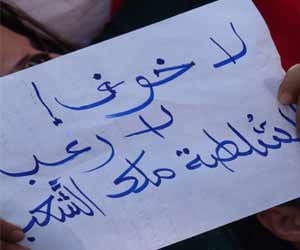 لا خوف!
لا رعب
السُلطة ملك الشَّعب